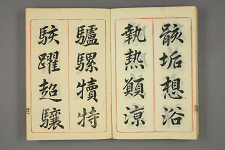 骸垢想浴
執熱願涼
驢騾犢特
駭躍超驤